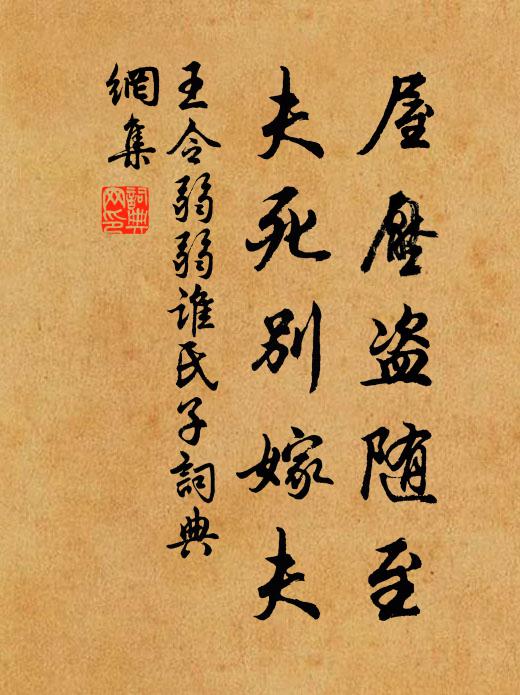 屋壓盗随至
夫死别嫁夫
王令弱弱谁氏子詞典
網集
詞典
网印